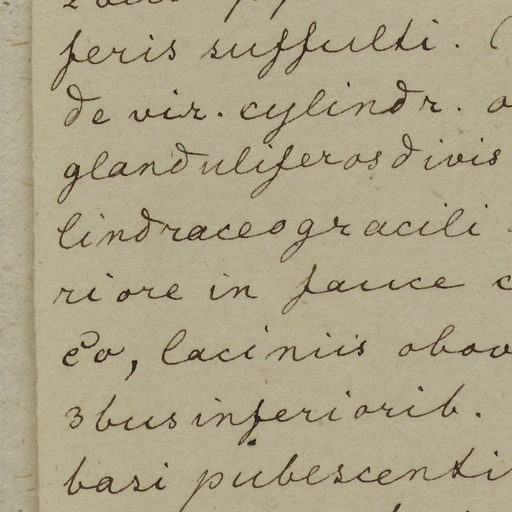 feris suffulti. (
de vir. cylindr. o
glanduliferos divis
lindraceo gracili
riore in fauce c
eo, laciniis obov
3bus inferiorib.
basi pubescenti